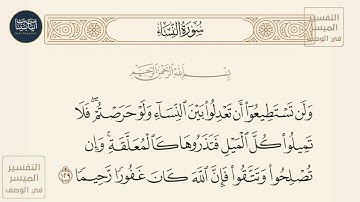 سُورَةُ النِّسَاءِ
التفسير
الميسر
في الوصف
بِسْمِ اللَّهِ الرَّحْمَٰنِ الرَّحِيمِ
وَلَن تَسْتَطِيعُوٓا۟ أَن تَعْدِلُوا۟ بَيْنَ ٱلنِّسَآءِ وَلَوْ حَرَصْتُمْ ۖ فَلَا
تَمِيلُوا۟ كُلَّ ٱلْمَيْلِ فَتَذَرُوهَا كَٱلْمُعَلَّقَةِ ۚ وَإِن
تُصْلِحُوا۟ وَتَتَّقُوا۟ فَإِنَّ ٱللَّهَ كَانَ غَفُورًا رَّحِيمًا ١٢٩
التفسير
الميسر
في الوصف